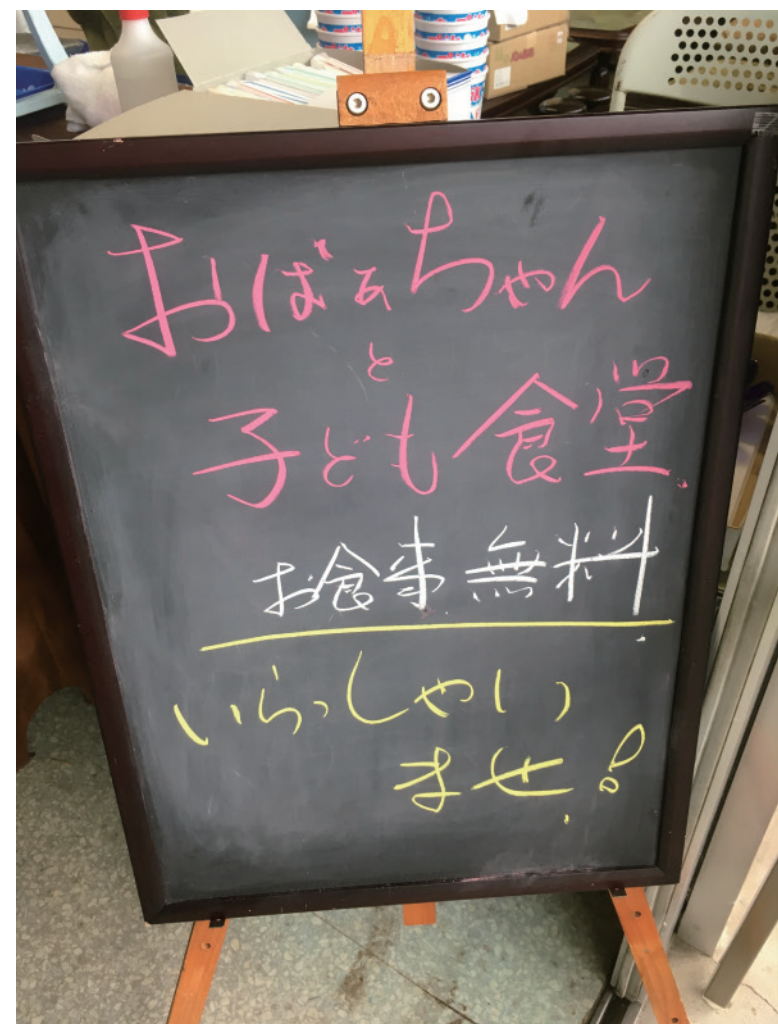 おばぁちゃん
と
子ども食堂
お食事無料
いらっしゃい
ませ!